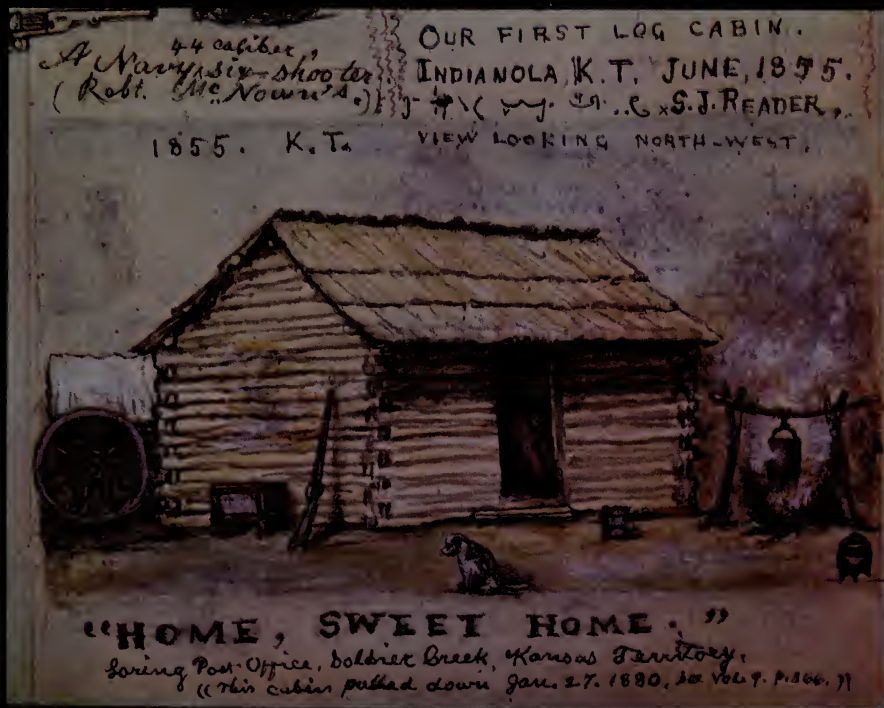 44 caliber,
A Navy six-shooter
(Robt. McNown's.)
OUR FIRST LOG CABIN.
INDIANOLA, K.T. JUNE, 1855.
S.J. READER.
1855. K.T.
VIEW LOOKING NORTH-WEST.
"HOME, SWEET HOME."
Loring Post-Office, Soldier Creek, Kansas Territory.
((This cabin pulled down Jan. 27. 1880, see Vol. 9.